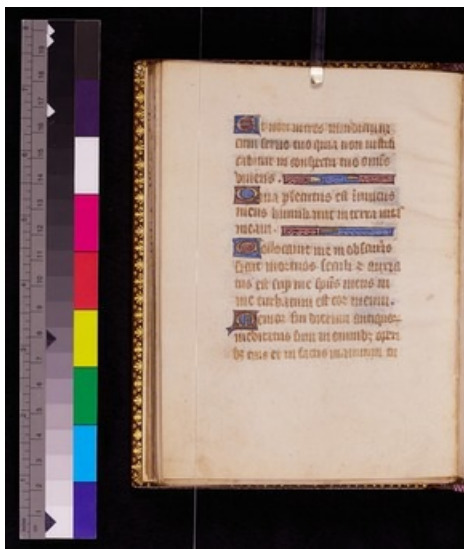 Et non intres in iudicium
cum seruo tuo quia non iustifi
cabitur in conspectu tuo omĩs
viuens.
Quia psecutus est inimicus
meus humiliauit in terra
meam.
Collocauit me in obscuris
sicut mortuos seculi & anxia
tus est sup me spũs meus in
me turbatum est cor meum.
Memor fui dierum antiquoꝝ
meditatus sum in omnibꝫ operi
bꝫ tuis et in factis manuum